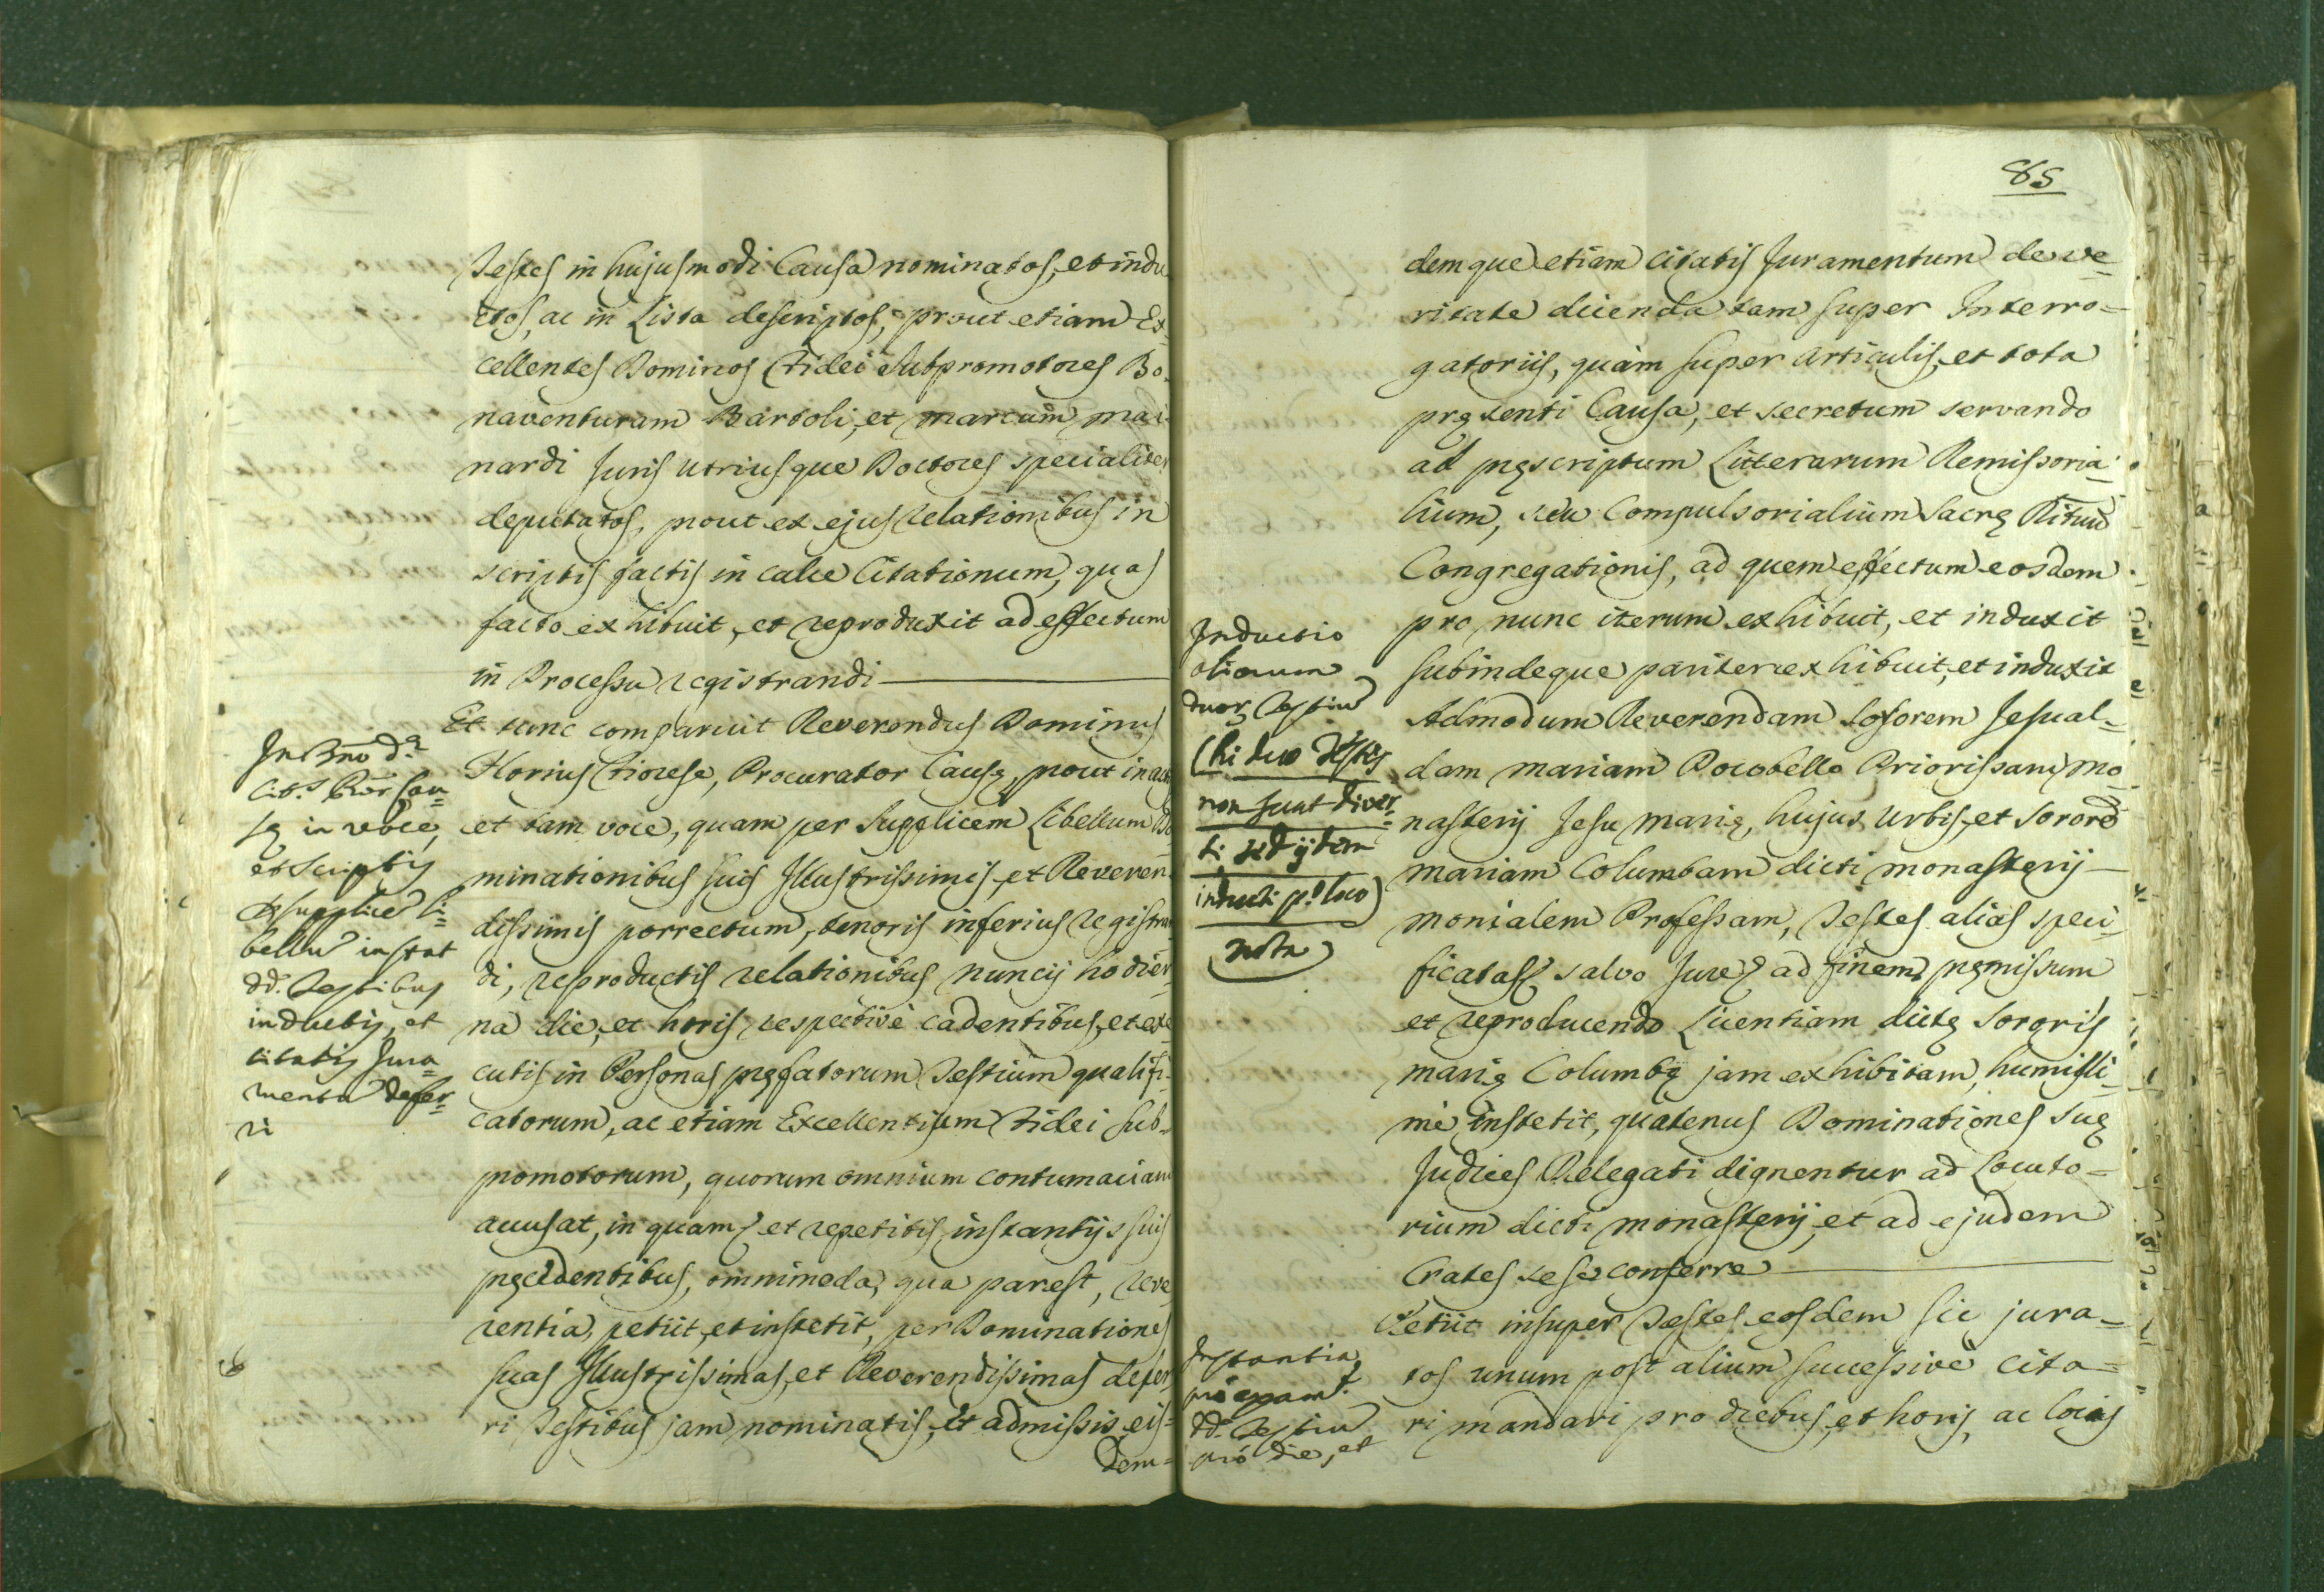 Testes in hujusmodi Causa nominatos, et indu
ctos, ac in Lista descriptos, prout etiam Ex
cellentes Dominos Fidei Subpromotores Bo
naventuram Bartoli, et Marcum Mai
nardi Juris utriusque Doctores specialiter
deputatos, prout ex ejus relationibus in
scriptis factis in calce Citationum, quas
facto exhibuit, et reproduxit ad effectum
in Processu registrandi
Et tunc comparuit Reverendus Dominus
Horius Fiorese, Procurator Causę, prout in act
et tam voce, quam per Supplicem Libellum Do
minationibus suis Illustrissimis, et Reveren
dissimis porrectum, tenoris inferius registran
di, reproductis relationibus nuncij hodier
na die, et horis respectivè cadentibus, et exe
cutis in Personas pręfatorum Testium qualifi
catorum, ac etiam Excellentium Fidei Sub=
promotorum, quorum omnium contumaciam
accusat, in quam et repetitis instantijs suis
pręcedentibus, omnimoda, qua par est, reve
rentia, petiit, et institit, per Dominationes
suas Illustrissimas, et Reverendissimas defer
ri Testibus jam nominatis, et admissis, eis=
dem=
citis. Procr Cau=
sę in voce,
et scriptis
supplice li=
bellu instat
dd. Testibus
inductis, et
citatis Jura=
mentu defer=
ri
85
demque etiam citatis Juramentum de ve=
ritate dicenda tam super Interro=
gatoriis, quàm super Articulis, et tota
pręsenti Causa, et secretum servando
ad pręscriptum Litterarum Remissoria=
lium, seu Compulsorialium Sacrę Rituu
Congregationis, ad quem effectum eosdem
pro nunc iterum exhibuit, et induxit
subindeque pariter exhibuit, et induxit
Admodum Reverendam Sororem Jesual=
dam Mariam Pocobello Priorissam Mo
nasterij Jesu Marię, hujus Urbis, et Sorore
Mariam Columbam dicti Monasterij
Monialem Professam, Testes alias speci=
ficatas salvo Jure ad finem pręmissum
et reproducendo Licentiam dictę Sororis
Marię Columbę jam exhibitam, humilli=
mè institit, quatenus Dominationes Suę
Judices Delegati dignentur ad Locuto=
rium dicti Monasterij, et ad ejusdem
Crates sese conferre
Petiit insuper Testes eosdem sic jura=
tos unum post alium successivè cita=
ri mandari pro diebus, et horis, ac locis
Inductio
aliarum
duar. Testiu
(hi duo Testes
non sunt diver=
si sed ijdem
inducti po. loco)
nota
Instantia
pro exam.
dd. Testiu
pro die, et